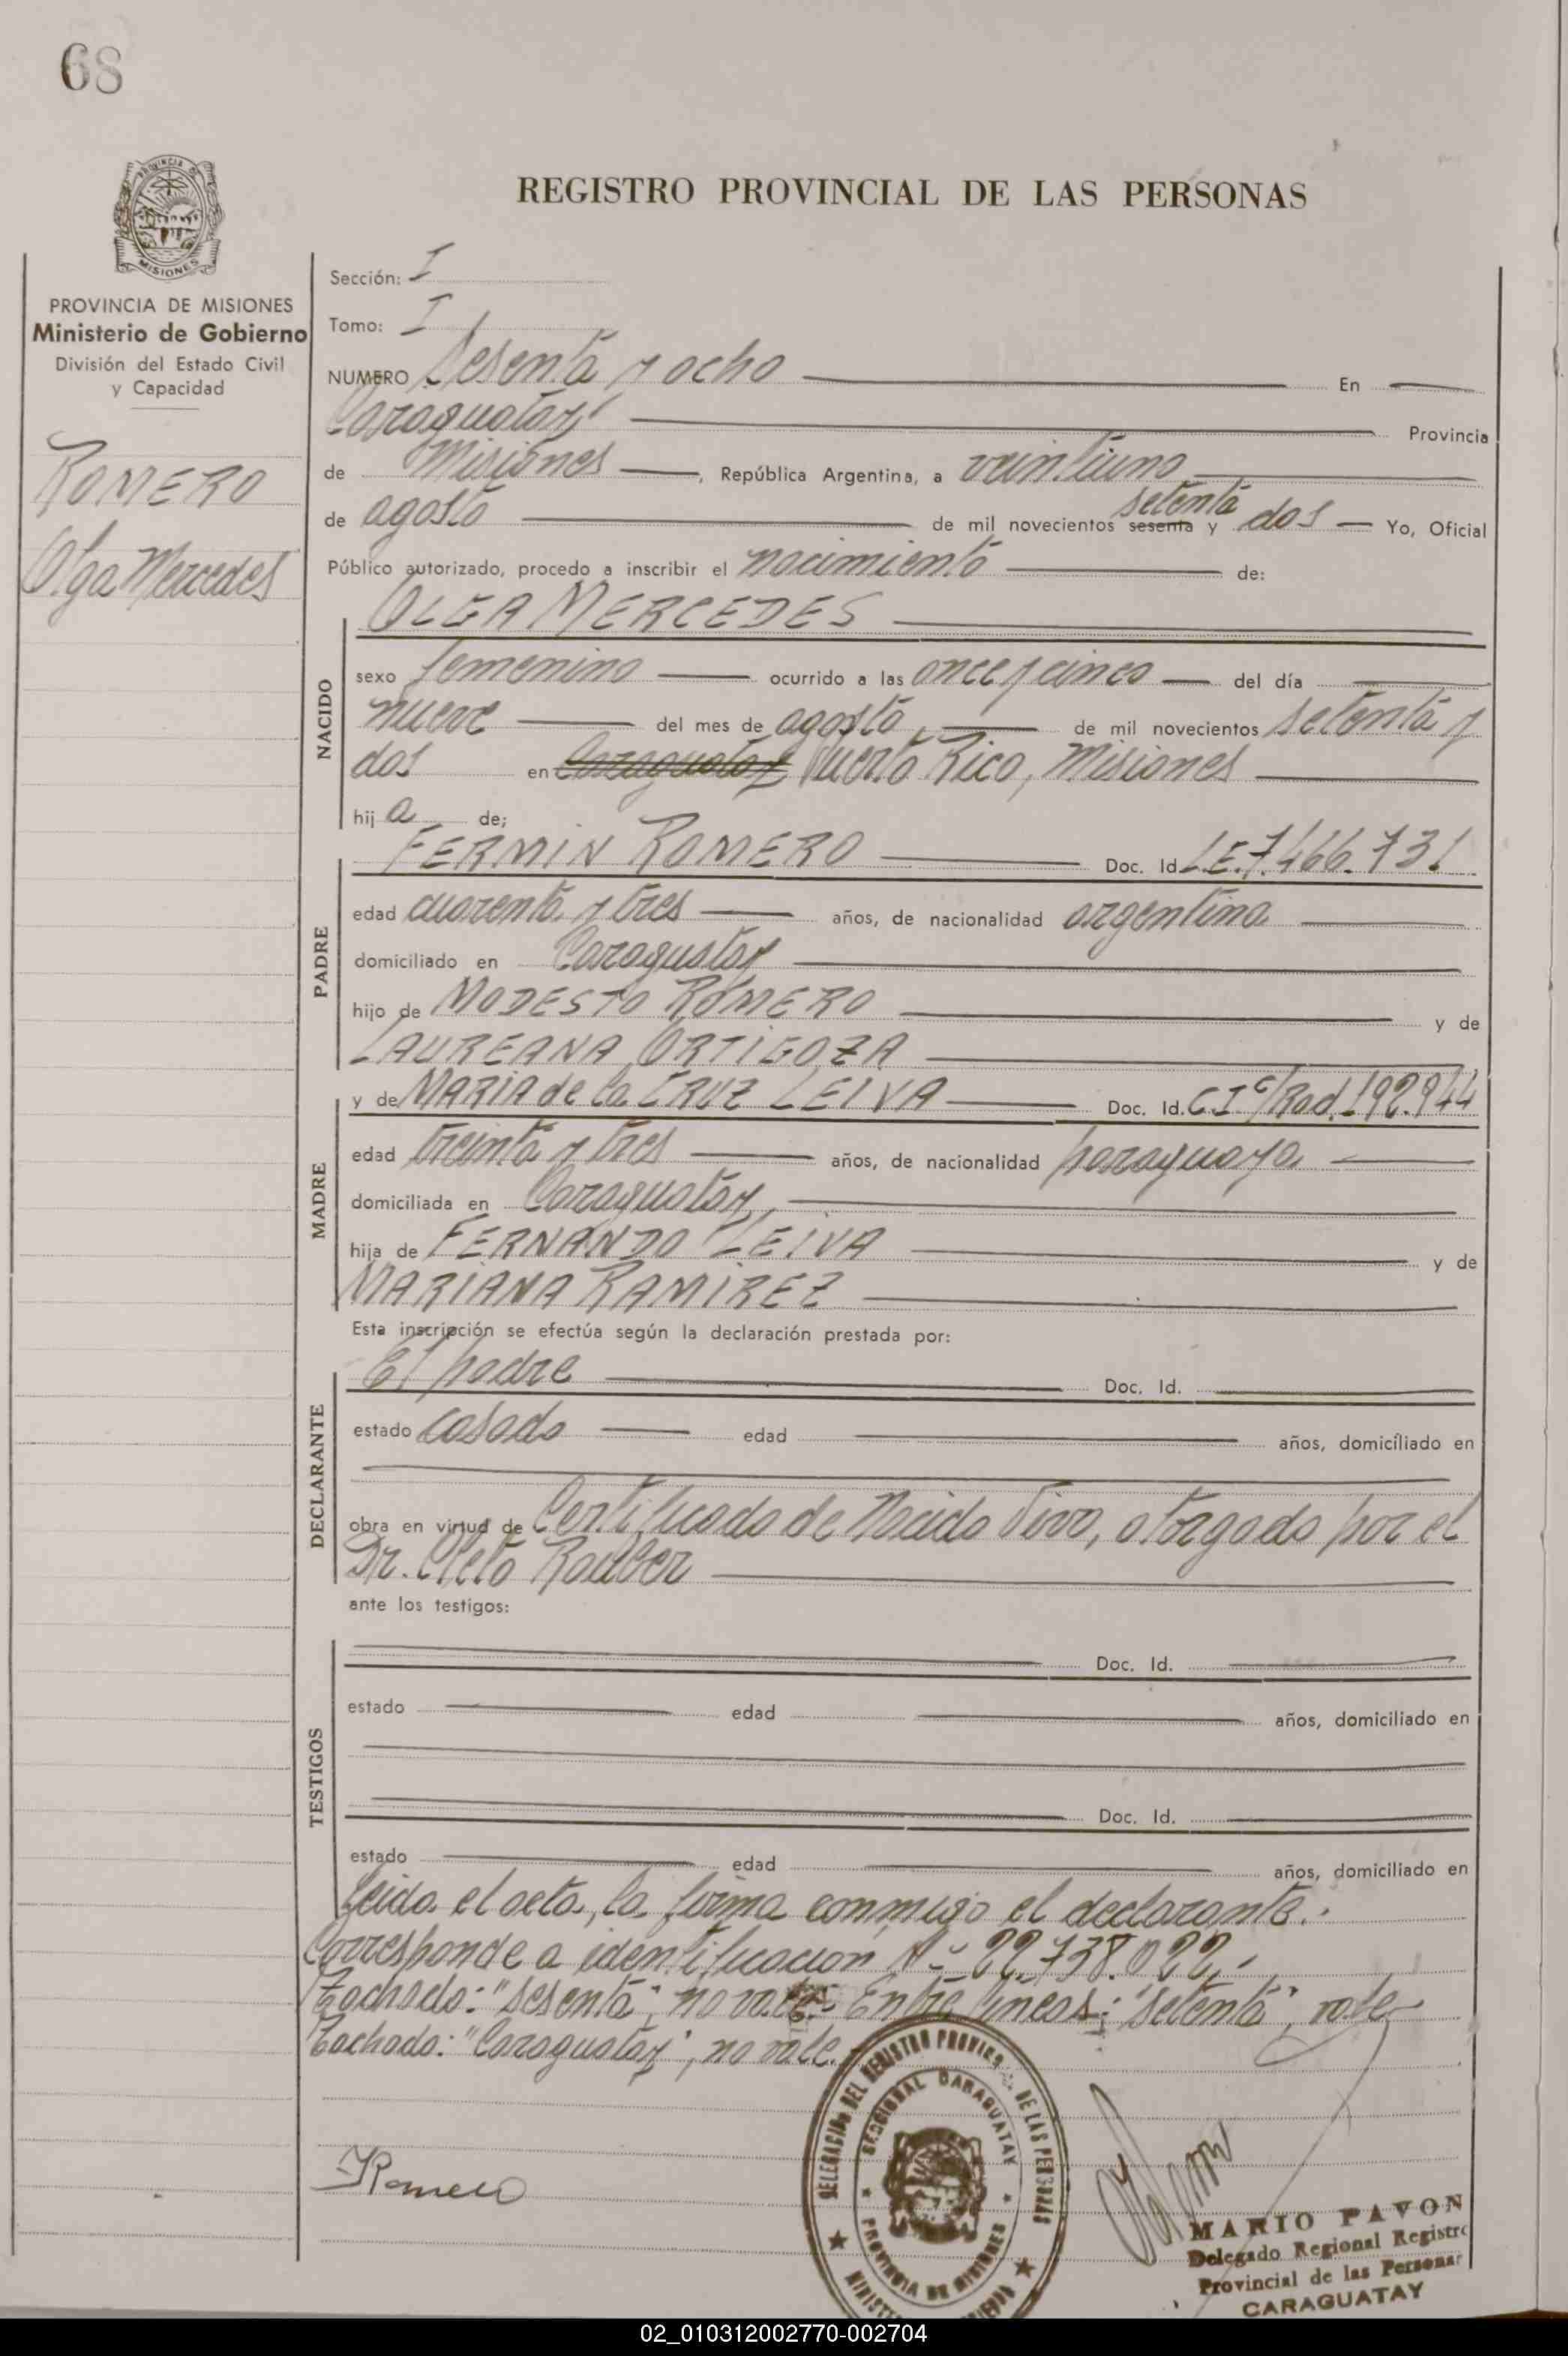 68
PROVINCIA DE
MISIONES
PROVINCIA DE MISIONES
Ministerio de Gobierno
División del Estado Civil
y Capacidad
ROMERO
Olga Mercedes
REGISTRO PROVINCIAL DE LAS PERSONAS
Sección: I
Tomo: I
NUMERO Sesenta y ocho En
Caraguatay
Provincia
de Misiones, República Argentina, a veintiuno
setenta
de agosto de mil novecientos sesenta y dos Yo, Oficial
Público autorizado, procedo a inscribir el nacimiento de:
NACIDO
OLGA MERCEDES
sexo femenino ocurrido a las once y cinco del día
nueve del mes de agosto, de mil novecientos setenta y
dos en Caraguatay Puerto Rico, Misiones
hij a de;
PADRE
FERMIN ROMERO Doc. Id. L.E.7.466.731
edad cuarenta y tres años, de nacionalidad argentina
domiciliado en Caraguatay
hijo de MODESTO ROMERO y de
LAUREANA ORTIGOZA
MADRE
y de MARIA de la CRUZ LEIVA Doc. Id. C.I.c/Rad.192.944
edad treinta y tres años, de nacionalidad paraguaya
domiciliada en Caraguatay,
hija de FERNANDO LEIVA y de
MARIANA RAMIREZ
Esta inscripción se efectúa según la declaración prestada por:
DECLARANTE
El padre Doc. Id.
estado casado edad años, domiciliado en
obra en virtud de Certificado de Nacido Vivo, otorgado por el
Dr. Cleto Rauber
ante los testigos:
TESTIGOS
Doc. Id.
estado edad años, domiciliado en
Doc. Id.
estado edad años, domiciliado en
Leida el acta, la firma conmigo el declarante.
Corresponde a identificacion Nº 22.738.022.-
Tachado: "sesenta", no vale.- Entre lineas: "setenta", vale
Tachado: "Caraguatay", no vale.
FRomero
DELEGACION DEL REGISTRO PROVINCIAL DE LAS PERSONAS
SECCIONAL CARAGUATAY
PROVINCIA DE MISIONES
MARIO PAVON
Delegado Regional Registro
Provincial de las Personas
CARAGUATAY
02_010312002770-002704